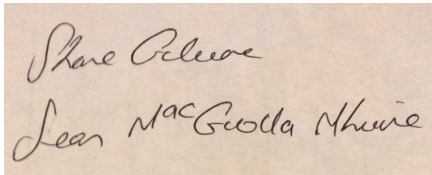 Shane Gilmore
Sean Mac Giolla Mhuire